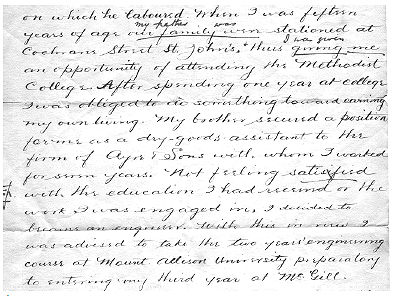 on which he laboured. When I was fifteen
my father was
years of age our family were stationed at
I was given
Cochrane Street St. John's, thus giving me
an opportunity of attending the Methodist
College. After spending one year at college
I was obliged to do something toward earning
my own living. My brother secured a position
for me as a dry-goods assistant to the
firm of Ayre & Sons with whom I worked
for seven years. Not feeling satisfied
with the education I had received or the
work I was engaged in, I decided to
become an engineer. With this in view I
was advised to take the two years' engineering
course at Mount Allison University preparatory
to entering my third year at McGill.